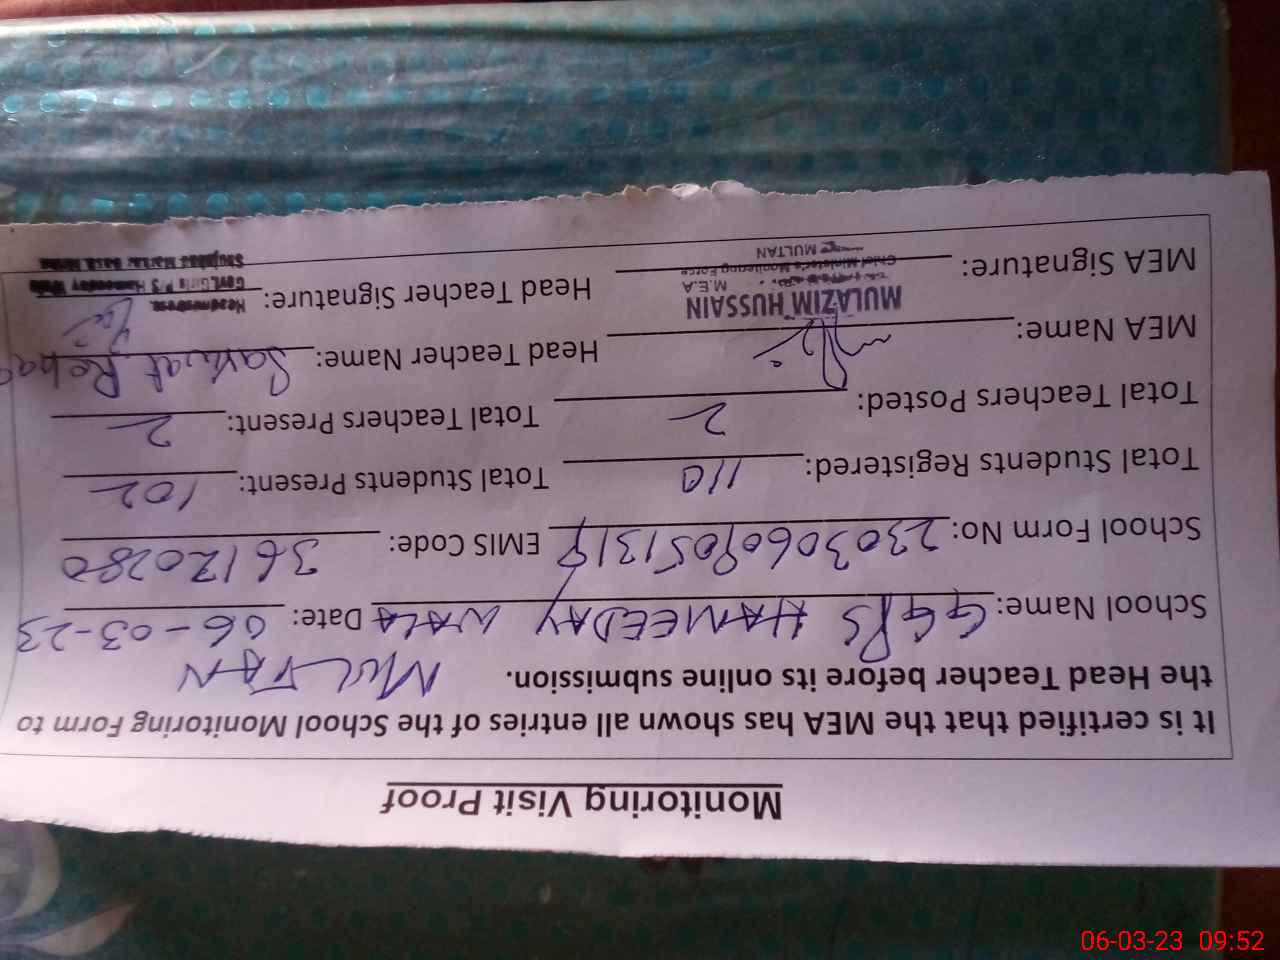 Monitoring Visit Proof
It is certified that the MEA has shown all entries of the School Monitoring Form to
the Head Teacher before its online submission. MULTAN
School Name: GGPS HAMEEDAY WALA Date: 06-03-23
School Form No: EMIS Code: 36120280
Total Students Registered: 110 Total Students Present: 102
Total Teachers Posted: 2 Total Teachers Present: 2
MEA Name: Head Teacher Name:
MULAZIM HUSSAIN
M.E.A
Chief Minister's Monitoring Force
MULTAN
MEA Signature: Head Teacher Signature:
Headmistress
Govt. Girls P/S
06-03-23 09:52